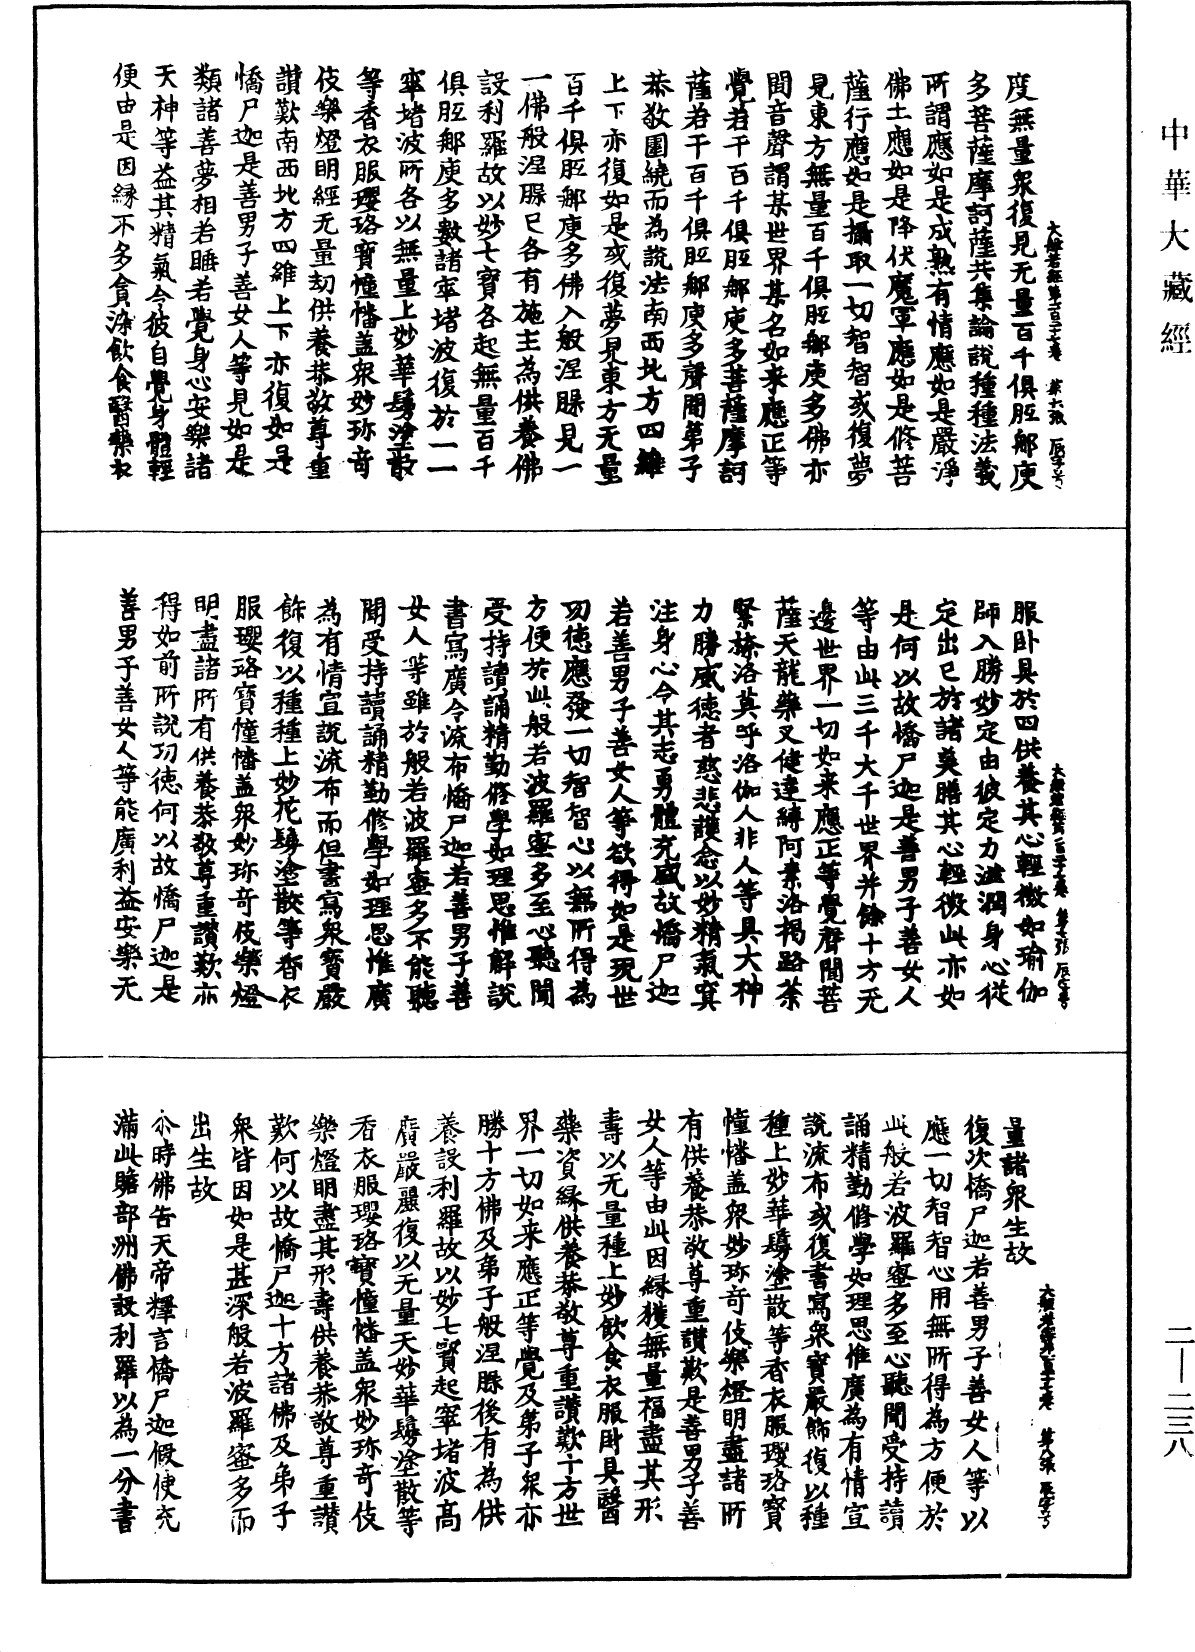 中華大藏經
二—二三八
大般若經第一百二十七卷 第六張 辰字号
度無量衆復見无量百千俱胝那庾
多菩薩摩訶薩共集論說種種法義
所謂應如是成熟有情應如是嚴淨
佛土應如是降伏魔軍應如是修菩
薩行應如是攝取一切智智或復夢
見東方無量百千俱胝那庾多佛亦
聞音聲謂某世界某名如来應正等
覺若干百千俱胝那庾多菩薩摩訶
薩若干百千俱胝那庾多聲聞弟子
恭敬圍繞而為說法南西北方四維
上下亦復如是或復夢見東方无量
百千俱胝那庾多佛入般涅槃見一
一佛般涅槃已各有施主為供養佛
設利羅故以妙七寶各起無量百千
俱胝那庾多數諸窣堵波復於一一
窣堵波所各以無量上妙華鬘塗散
等香衣服瓔珞寶幢幡盖衆妙珎奇
伎樂燈明經无量劫供養恭敬尊重
讃歎南西北方四維上下亦復如是
憍尸迦是善男子善女人等見如是
類諸善夢相若睡若覺身心安樂諸
天神等益其精氣令彼自覺身體輕
便由是因緣不多貪染飲食醫藥衣
大般若經第一百二十七卷 第七張 辰字号
服卧具於四供養其心輕微如瑜伽
師入勝妙定由彼定力滋潤身心從
定出已於諸美膳其心輕微此亦如
是何以故憍尸迦是善男子善女人
等由此三千大千世界并餘十方无
邊世界一切如来應正等覺聲聞菩
薩天龍藥叉健達縛阿素洛揭路荼
緊捺洛莫呼洛伽人非人等具大神
力勝威德者慈悲護念以妙精氣冥
注身心令其志勇體充盛故憍尸迦
若善男子善女人等欲得如是現世
功德應發一切智智心以無所得為
方便於此般若波羅蜜多至心聽聞
受持讀誦精勤修學如理思惟解說
書寫廣令流布憍尸迦若善男子善
女人等雖於般若波羅蜜多不能聽
聞受持讀誦精勤修學如理思惟廣
為有情宣說流布而但書寫衆寶嚴
飾復以種種上妙花鬘塗散等香衣
服瓔珞寶幢幡盖衆妙珎奇伎樂燈
明盡諸所有供養恭敬尊重讃歎亦
得如前所說功德何以故憍尸迦是
善男子善女人等能廣利益安樂无
大般若經第一百二十七卷 第八張 辰字号
量諸衆生故
復次憍尸迦若善男子善女人等以
應一切智智心用無所得為方便於
此般若波羅蜜多至心聽聞受持讀
誦精勤修學如理思惟廣為有情宣
說流布或復書寫衆寶嚴飾復以種
種上妙華鬘塗散等香衣服瓔珞寶
幢幡盖衆妙珎奇伎樂燈明盡諸所
有供養恭敬尊重讃歎是善男子善
女人等由此因緣獲無量福盡其形
壽以无量種上妙飲食衣服卧具醫
藥資緣供養恭敬尊重讃歎十方世
界一切如来應正等覺及弟子衆亦
勝十方佛及弟子般涅槃後有為供
養設利羅故以妙七寶起窣堵波高
廣嚴麗復以无量天妙華鬘塗散等
香衣服瓔珞寶幢幡盖衆妙珎奇伎
樂燈明盡其形壽供養恭敬尊重讃
歎何以故憍尸迦十方諸佛及弟子
衆皆因如是甚深般若波羅蜜多而
出生故
尒時佛告天帝釋言憍尸迦假使充
滿此贍部洲佛設利羅以為一分書